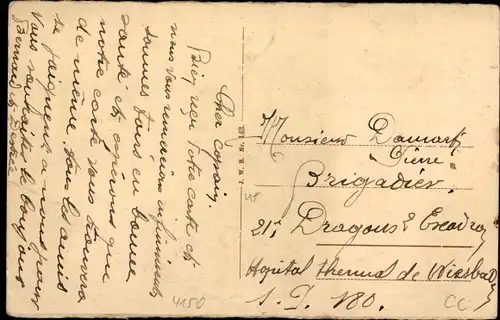 Cher copain,
Bien reçu votre carte et
nous vous remercions infiniment
sommes tous en bonne
santé et espérons que
notre carte vous trouvera
de même tous les amis
se joignent à nous pour
vous souhaiter le bonjour
Bernard et
Monsieur Damart
Pierre
Brigadier
21e Dragons 2 Escadron
Hopital thermal de Wiesbad
S.P. 180.
4150
CC